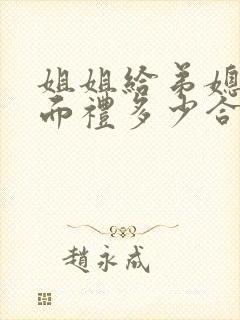 姐姐給弟媳
而禮多少合
趙永成